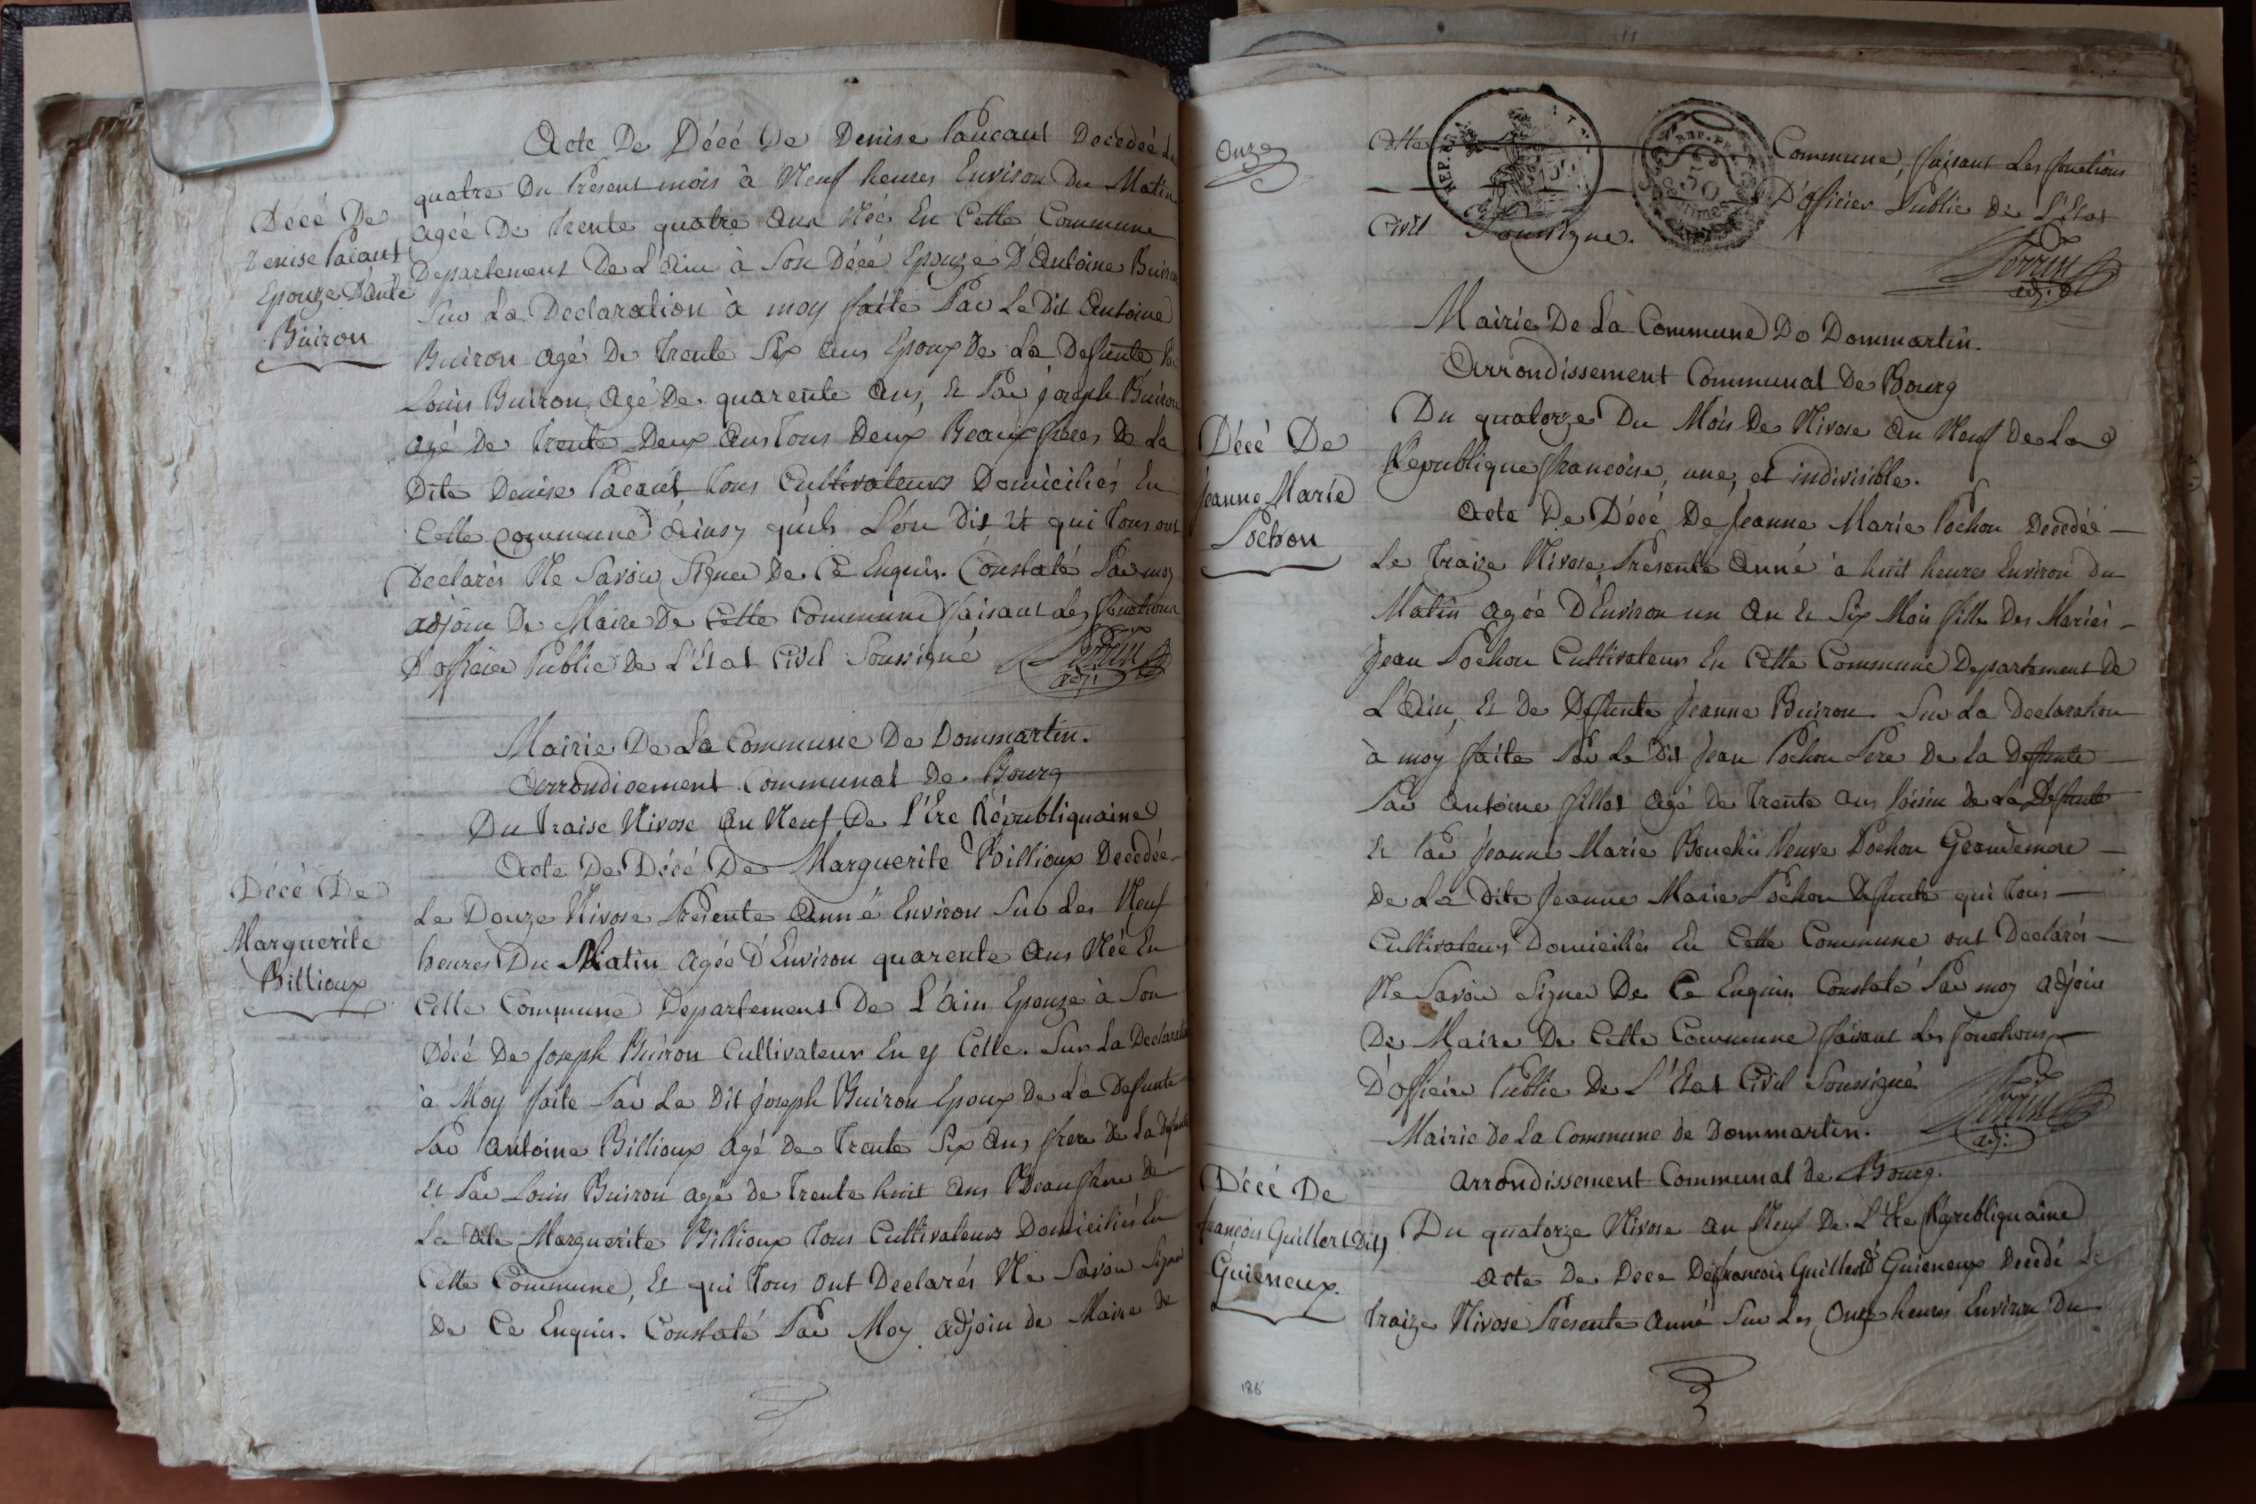 Acte De Décé De Denise Paucaut Decedeé Le
quatre Du Présent mois à Neuf heures Environ Du Matin
Décé De
Denise Pacaut
Epouze D'ante
Buiron
agéé De trente quatre ans Néé En Cette Commune
Departement De L'Ain à Son Décé Epouze D'Antoine Buiron
Sur La Declaration à moy faite Par Le Dit Antoine
Buiron agé De trente Six ans Epoux De La Defunte, Par
Louis Buiron, agé De quarente ans, Et Par joseph Buiron
agé De trente Deux ans tous Deux Beaux freres De La
Dite Denise Pacaut tous Cultivateurs Domiciliés En
Cette commune ainsy quils L'on Dit Et qui tous ont
Declarés Ne Savoir Signer De Ce Enquis. Constaté Par moy
adjoin De Maire De Cette Commune faisant Les fonctions
D'officier Public De L'Etat Civil Soussigné Perrin
adj.
Mairie De La Commune De Dommartin.
Arrondisement Communal De Bourg
Du traise Nivose an Neuf De l'Ere Républiquaine
Acte De Décé De Marguerite Billioux Decedée
Décé De
Marguerite
Billioux
Le Douze Nivose Présente Anné Environ Sur Les Neuf
heures Du Matin agéé D'Environ quarente ans Néé En
Cette Commune Departement De L'ain Epouze à Son
Décé De joseph Buiron Cultivateur En y Celle. Sur La Declaration
à Moy faite Par Le Dit joseph Buiron Epoux De La Defunte
Par antoine Billioux agé De trente Six ans frere De La Defunte
Et Par Louis Buiron agé De trente huit ans Beaufrere De
La dite Marguerite Billioux tous Cultivateurs Domiciliés En
Cette Commune, Et qui tous ont Declarés Ne Savoir Signer
De Ce Enquis. Constaté Par Moy adjoin De Maire De
Onze
Cette Commune, faisant Les fonctions
D'officier Public De L'Etat
Civil Soussigné.
REP. FRA.
50
Perrin
adj.
Mairie De La Commune De Dommartin.
Arrondissement Communal De Bourg
Du quatorze Du Mois De Nivose an Neuf De La
Republique francoise, une, et indivisible.
Décé De
jeanne Marie
Pochon
Acte De Décé De Jeanne Marie Pochon Decedéé
Le traize Nivose Présente Anné à huit heures Environ du
Matin agéé D'Environ un an Et Six Mois fille Des Mariés
Jean Pochon Cultivateur En Cette Commune Departement De
L'Ain, Et De Defunte Jeanne Buiron. Sur La Declaration
à moy faite Par Le Dit Jean Pochon Pere De la Defunte
Par Antoine fillot agé De trente ans Voisin de La Defunte
Et Par Jeanne Marie Bouchu Veuve Pochon Grandemère
De La Dite Jeanne Marie Pochon Defunte qui tous
Cultivateurs Domiciliés En Cette Commune ont Declarés
Ne Savoir Signer De Ce Enquis. Constaté Par moy adjoin
De Maire De Cette Commune faisant Les fonctions
D'officier Public De L'Etat Civil Soussigné
Perrin
adj.
Mairie De La Commune de Dommartin.
arrondissement Communal de Bourg.
Décé De
françois Guillerd Dit
Guieneux.
Du quatorze Nivose an Neuf De L'Ere Republiquaine
acte De Dece De françois Guillerd Guieneux Decedé Le
traize Nivose Présente Anné Sur Les Onze heures Environ Du
186